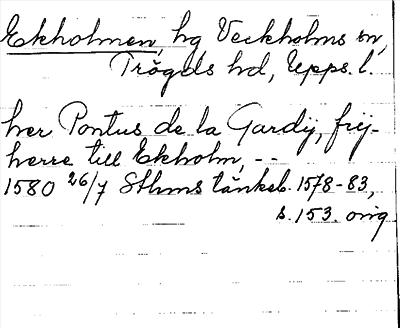 Ekholmen, hg Veckholms sn,
Trögds hd, Upps. l.
her Pontus de la Gardij, frij-
herre till Ekholm, --
1580 26/7 Sthms tänkeb. 1578-83,
s. 153. orig.